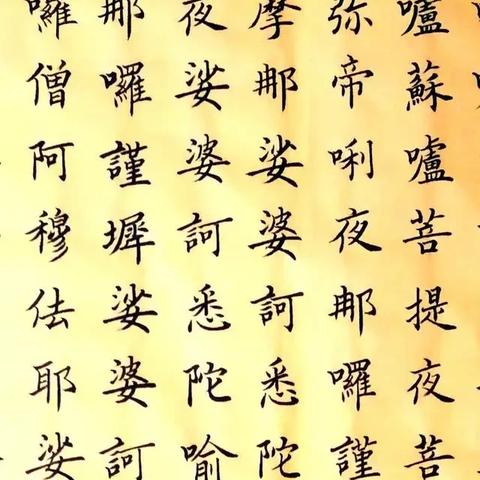 嚧蘇嚧菩提夜菩
弥帝唎夜那囉謹
摩那娑婆訶悉陀
夜娑婆訶悉陀喻
那囉謹墀娑婆訶
囉僧阿穆佉耶娑